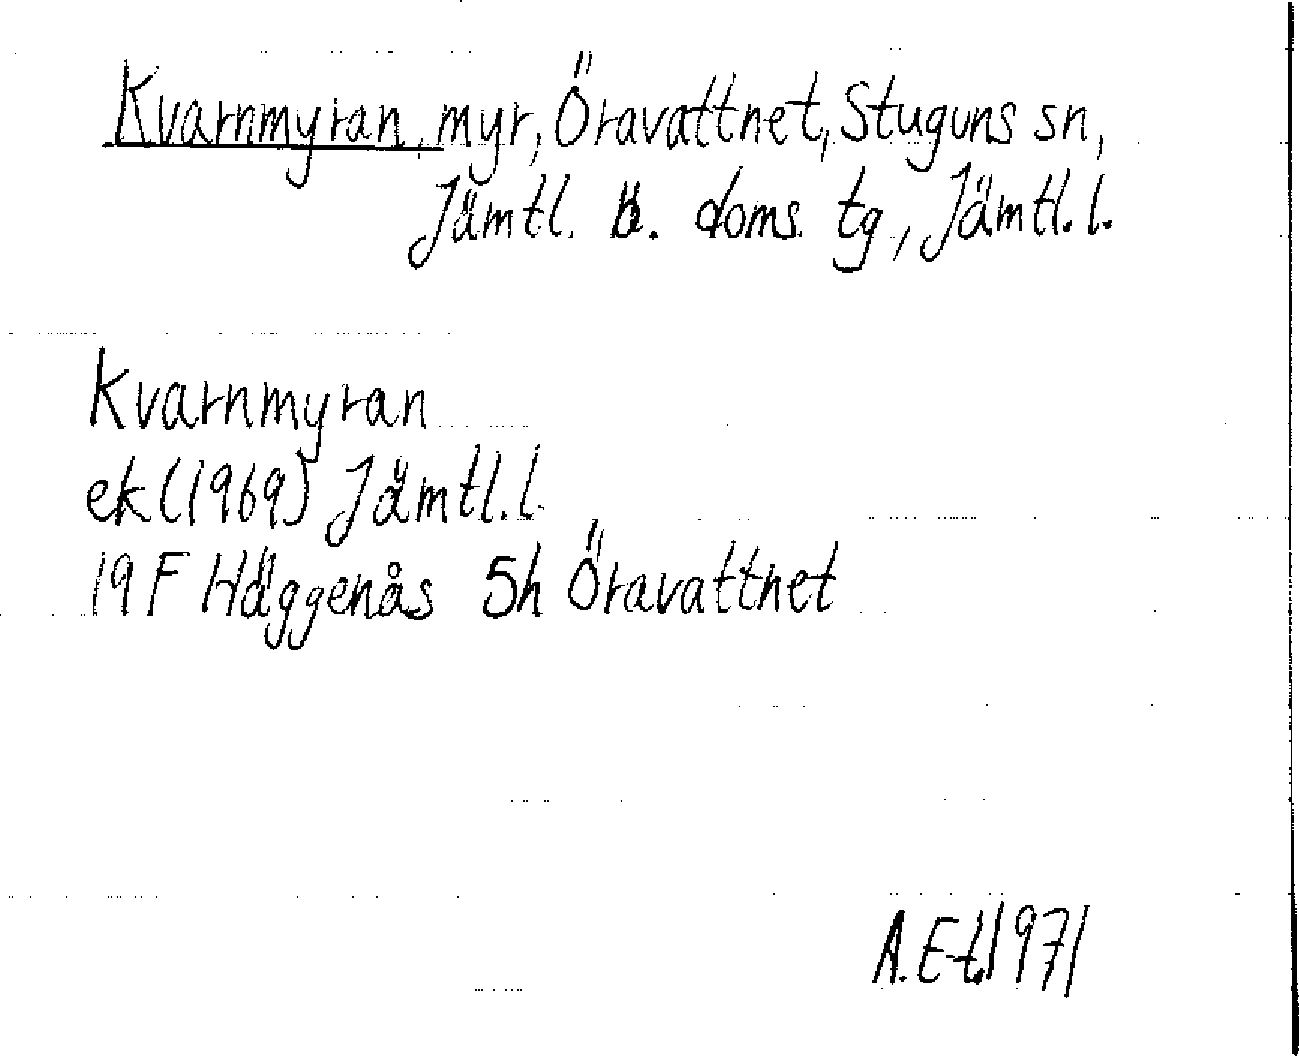 Kvarnmyran, myr, Öravattnet, Stuguns sn,
Jämtl. ö. doms. tg, Jämtl. l.
Kvarnmyran
ek (1969) Jämtl. l.
19 F Häggenås 5h Öravattnet
A.E-t. 1971